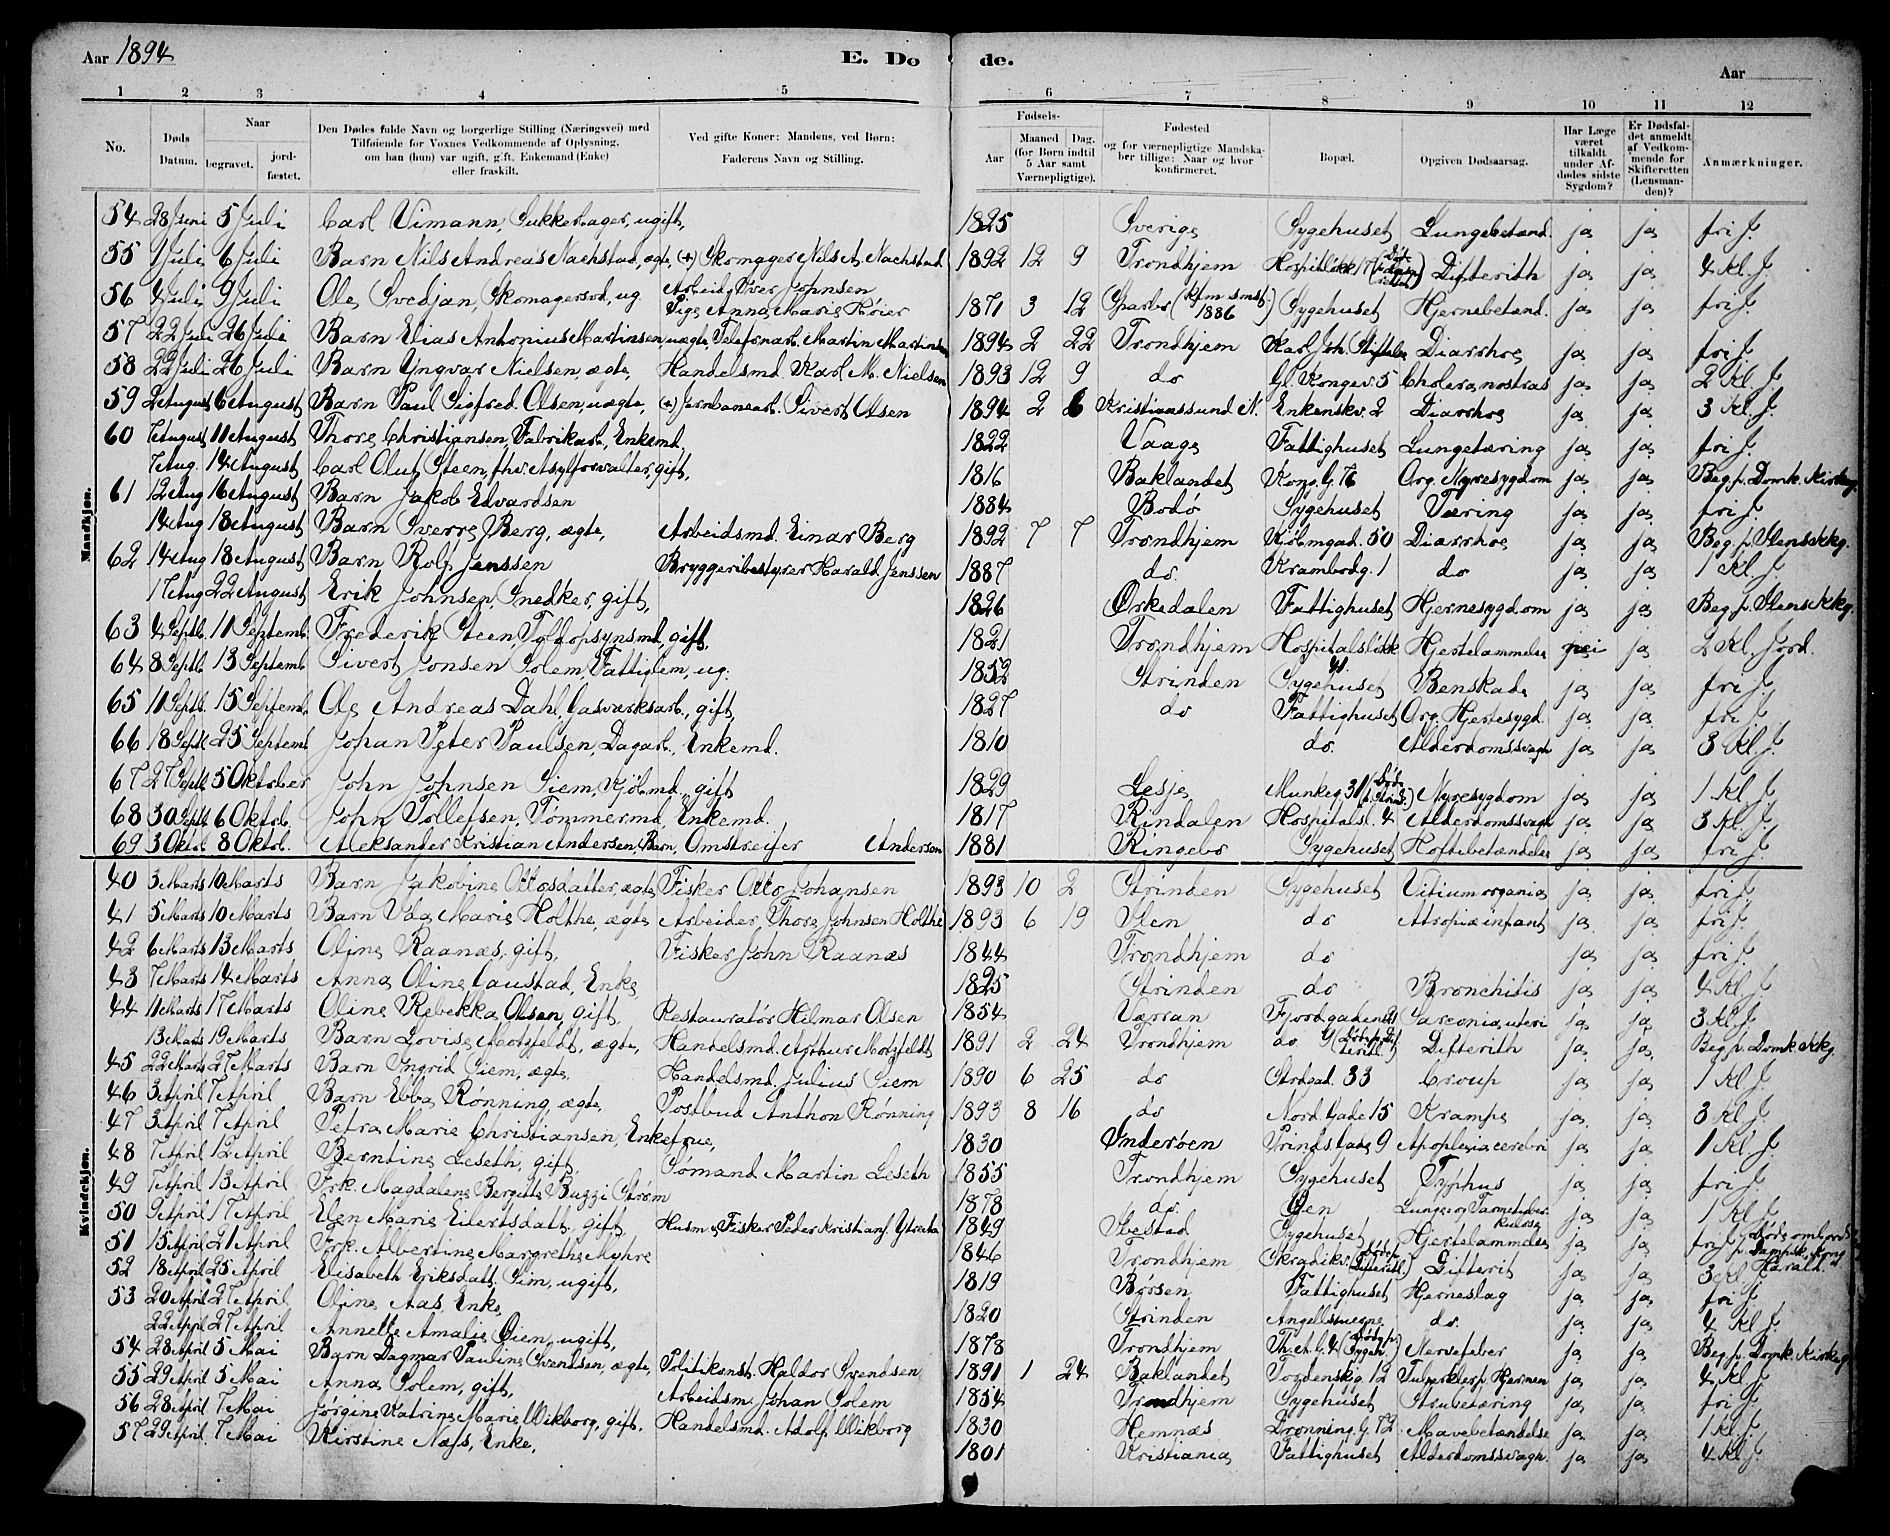 Aar 1894
E. Dø
de.
Aar
1 2 3 4 5 6 7 8 9 10 11 12
No.
Døds Datum.
Naar
begravet.
jord-fæstet.
Den Dødes fulde Navn og borgerlige Stilling (Næringsvei) med
Tilføiende for Voxnes Vedkommende af Oplysning,
om han (hun) var ugift, gift, Enkemand (Enke)
eller fraskilt.
Ved gifte Koner: Mandens, ved Børn:
Faderens Navn og Stilling.
Fødsels-
Aar
Maaned Dag.
(for Børn indtil
5 Aar samt
Værnepligtige).
Fødested
og for værnepligtige Mandska-
ber tillige: Naar og hvor
konfirmeret.
Bopæl.
Opgiven Dødsaarsag.
Har Læge
været
tilkaldt
under Af-
dødes sidste
Sygdom?
Er Dødsfal-
det anmeldt
af Vedkom-
mende for
Skifteretten
(Lensman-
den)?
Anmærkninger.
Mandkjøn.
54 28 Juni 5 Juli Carl Vimann, Sukkerbager, ugift, 1825 Sverige Sygehuset Lungebetænd. ja ja fri J.
55 1 Juli 6 Juli Barn Nils Andreas Nachstad, ægte, (+) Skomager Nils A. Nachstad 1892 12 9 Trondhjem Difterith ja ja 4 Kl. J.
56 4 Juli 9 Juli Ole Svedjan, Skomagersvd, ug. Arbeid. Iver Johnsen Pige Anna Marie Høier 1871 3 12 Sparbo (Kfm smst. 1886) Sygehuset Hjernebetænd. ja ja fri J.
57 22 Juli 26 Juli Barn Elias Antonius Martinsen, uægte, Telefonarb. Martin Martinsen 1894 2 22 Trondhjem Karl Joh. Stiftelse Diarrhoe ja ja fri J.
58 22 Juli 26 Juli Barn Yngvar Nielsen, ægte, Handelsmd. Karl M. Nielsen 1893 12 9 do Gl. Kongev. 5 Cholera nostras ja ja 2 Kl. J.
59 2 August 6 August Barn Paul Sigfred Olsen, uægte, (+) Jernbanearb. Sivert Olsen 1894 2 6 Kristianssund N. Enkenskv. 2 Diarrhoe ja ja 3 Kl. J.
60 7 August 11 August Thore Christiansen, Fabrikarb., Enkemd. 1822 Vaage Fattighuset Lungetæring ja ja fri J.
7 Aug. 14 August Carl Oluf Steen, fhv. Asylforvalter, gift, 1816 Baklandet Kong. G. 76 Org. Nyresygdom ja ja Beg. p. Domk. Kirkeg.
61 12 Aug 16 August Barn Jakob Edvardsen 1884 Bodø Sygehuset Tæring ja ja fri J.
14 Aug 18 August Barn Sverre Berg, ægte, Arbeidsmd. Einar Berg 1892 7 7 Trondhjem Kjøbmgad. 50 Diarrhoe ja ja Beg. p. Stens Kkg.
62 14 Aug 18 August Barn Rolf Jenssen Bryggeribestyrer Harald Jenssen 1887 do. Krambodg. 1 do ja ja 1 Kl. J.
17 Aug 22 August Erik Johnsen, Snedker, gift, 1826 Orkedalen Fattighuset Hjernesygdom ja ja Beg. p. Stens Kkg.
63 4 Septb. 11 Septemb. Frederik Steen, Toldopsynsmd, gift, 1821 Trondhjem Hospitalsløkk 41 Hjertelammelse nei ja 2 Kl. Jord.
64 8 Septb. 13 Septemb. Sivert Jonsen Solem, Fattiglem, ug. 1852 Strinden Sygehuset Benskade ja ja fri J.
65 11 Septb. 15 Septemb. Ole Andreas Dahl, Gasværksarb., gift, 1827 do Fattighuset Org. Hjertesygd. ja ja fri J.
66 18 Septb. 25 Septemb. Johan Peter Paulsen, Dagarb., Enkemd. 1810 do. Alderdomssvagh ja ja 3 Kl. J.
67 27 Septb. 5 Oktober John Johnsen Siem, Kjøbmd., gift 1829 Lesje Munkeg 31 Nyresygdom ja ja 1 Kl. J.
68 30 Septb. 6 Oktob. John Tollefsen, Tømmermd, Enkemd. 1817 Rindalen Hospitalsl. 4 Alderdomssvagh ja ja 3 Kl. J.
69 3 Oktob. 8 Oktob. Aleksander Kristian Andersen, Barn, Omstreifer Andersen 1881 Ringebo Sygehuset Hoftebetændelse ja ja fri J.
Kvindekjøn.
40 3 Marts 10 Marts Barn Jakobine Ottosdatter, ægte, Fisker Otto Johansen 1893 10 2 Strinden Sygehuset Vitium organic ja ja fri J.
41 5 Marts 10 Marts Barn Ida Marie Holthe, ægte Arbeider Thore Johnsen Holthe 1893 6 19 Sten do Atropia infant ja ja fri J.
42 6 Marts 13 Marts Oline Raanæs, gift, Fisker John Raanæs 1844 Trondhjem do ja ja fri J.
43 7 Marts 14 Marts Anna Oline Caustad, Enke, 1825 Strinden do Bronchitis ja ja 4 Kl. J.
44 11 Marts 17 Marts Oline Rebekka Olsen, gift, Restauratør Hilmar Olsen 1854 Værran Fjordgaden Sarconia uteri ja ja 3 Kl. J.
13 Marts 19 Marts Barn Lovise Motzfeldt, ægte, Handelsmd. Arthur Motzfeldt 1891 2 24 Trondhjem do. Difterith ja ja Beg. p. Domk Kkg.
45 22 Marts 27 Marts Barn Ingrid Siem, ægte, Handelsmd. Julius Siem 1890 6 25 do Strdgad. 33 Croup ja ja 1 Kl. J.
46 3 April 7 April Barn Ebba Rønning, ægte, Postbud Anthon Rønning 1893 8 16 do Nord. Gade 15 Krampe ja ja 3 Kl. J.
47 3 April 7 April Petra Marie Christiansen, Enkefrue, 1830 Inderøen Prinds. Gade 9 Apoplexia cerebri ja ja 1 Kl. J.
48 7 April 12 April Berntine Leseth, gift, Sømand Martin Leseth 1855 Trondhjem Sygehuset Typhus ja ja fri J.
49 7 April 13 April Frk. Magdalene Bergitte Buzzi Strøm 1878 do. Øen Lunge og Tarmtuberkulose ja ja 1 Kl. J.
50 9 April 17 April Elen Marie Eilertsdatt., gift, Husm. & Fisker Peder Kristianf. Ytreeka 1849 Ibestad Sygehuset Hjertelammelse ja ja fri J. Døde ombord p. Dampsk. Kong Harald
51 15 April 21 April Frk. Albertine Margrethe Myhre 1846 Trondhjem Difterit ja ja 3 Kl. J.
52 18 April 25 April Elisabeth Eriksdatt. Sim, ugift, 1819 Børsen Fattighuset Hjerneslag ja ja fri J.
53 20 April 27 April Oline Aas, Enke, 1820 Strinden do. ja ja 4 Kl. J.
22 April 27 April Annette Amalie Oien, ugift, 1878 Trondhjem Th. A. G. 4 (Død p. Sygeh.) Nervefeber ja ja Beg. p. Domk. Kirkeg
54 28 April 5 Mai Barn Dagmar Pauline Svendsen, ægte, Politikonst. Haldor Svendsen 1891 1 24 Baklandet Tordenskg. 12 Tuberkler p. Hjernen ja ja 4 Kl. J.
55 29 April 5 Mai Anna Solem, gift, Arbeidsm. Johan Solem 1854 Trondhjem Sygehuset Strubetæring ja ja fri J.
56 28 April 7 Mai Jorgine Katrine Marie Wikborg, gift, Handelsmd. Adolf Wikborg 1830 Hemnæs Dronning. G. 72 Mavebetændelse ja ja 1 Kl. J.
57 29 April. 7 Mai Kirstine Næss, Enke, 1801 Kristiania Fattighuset Alderdomssvagh. ja ja 4 Kl. J.